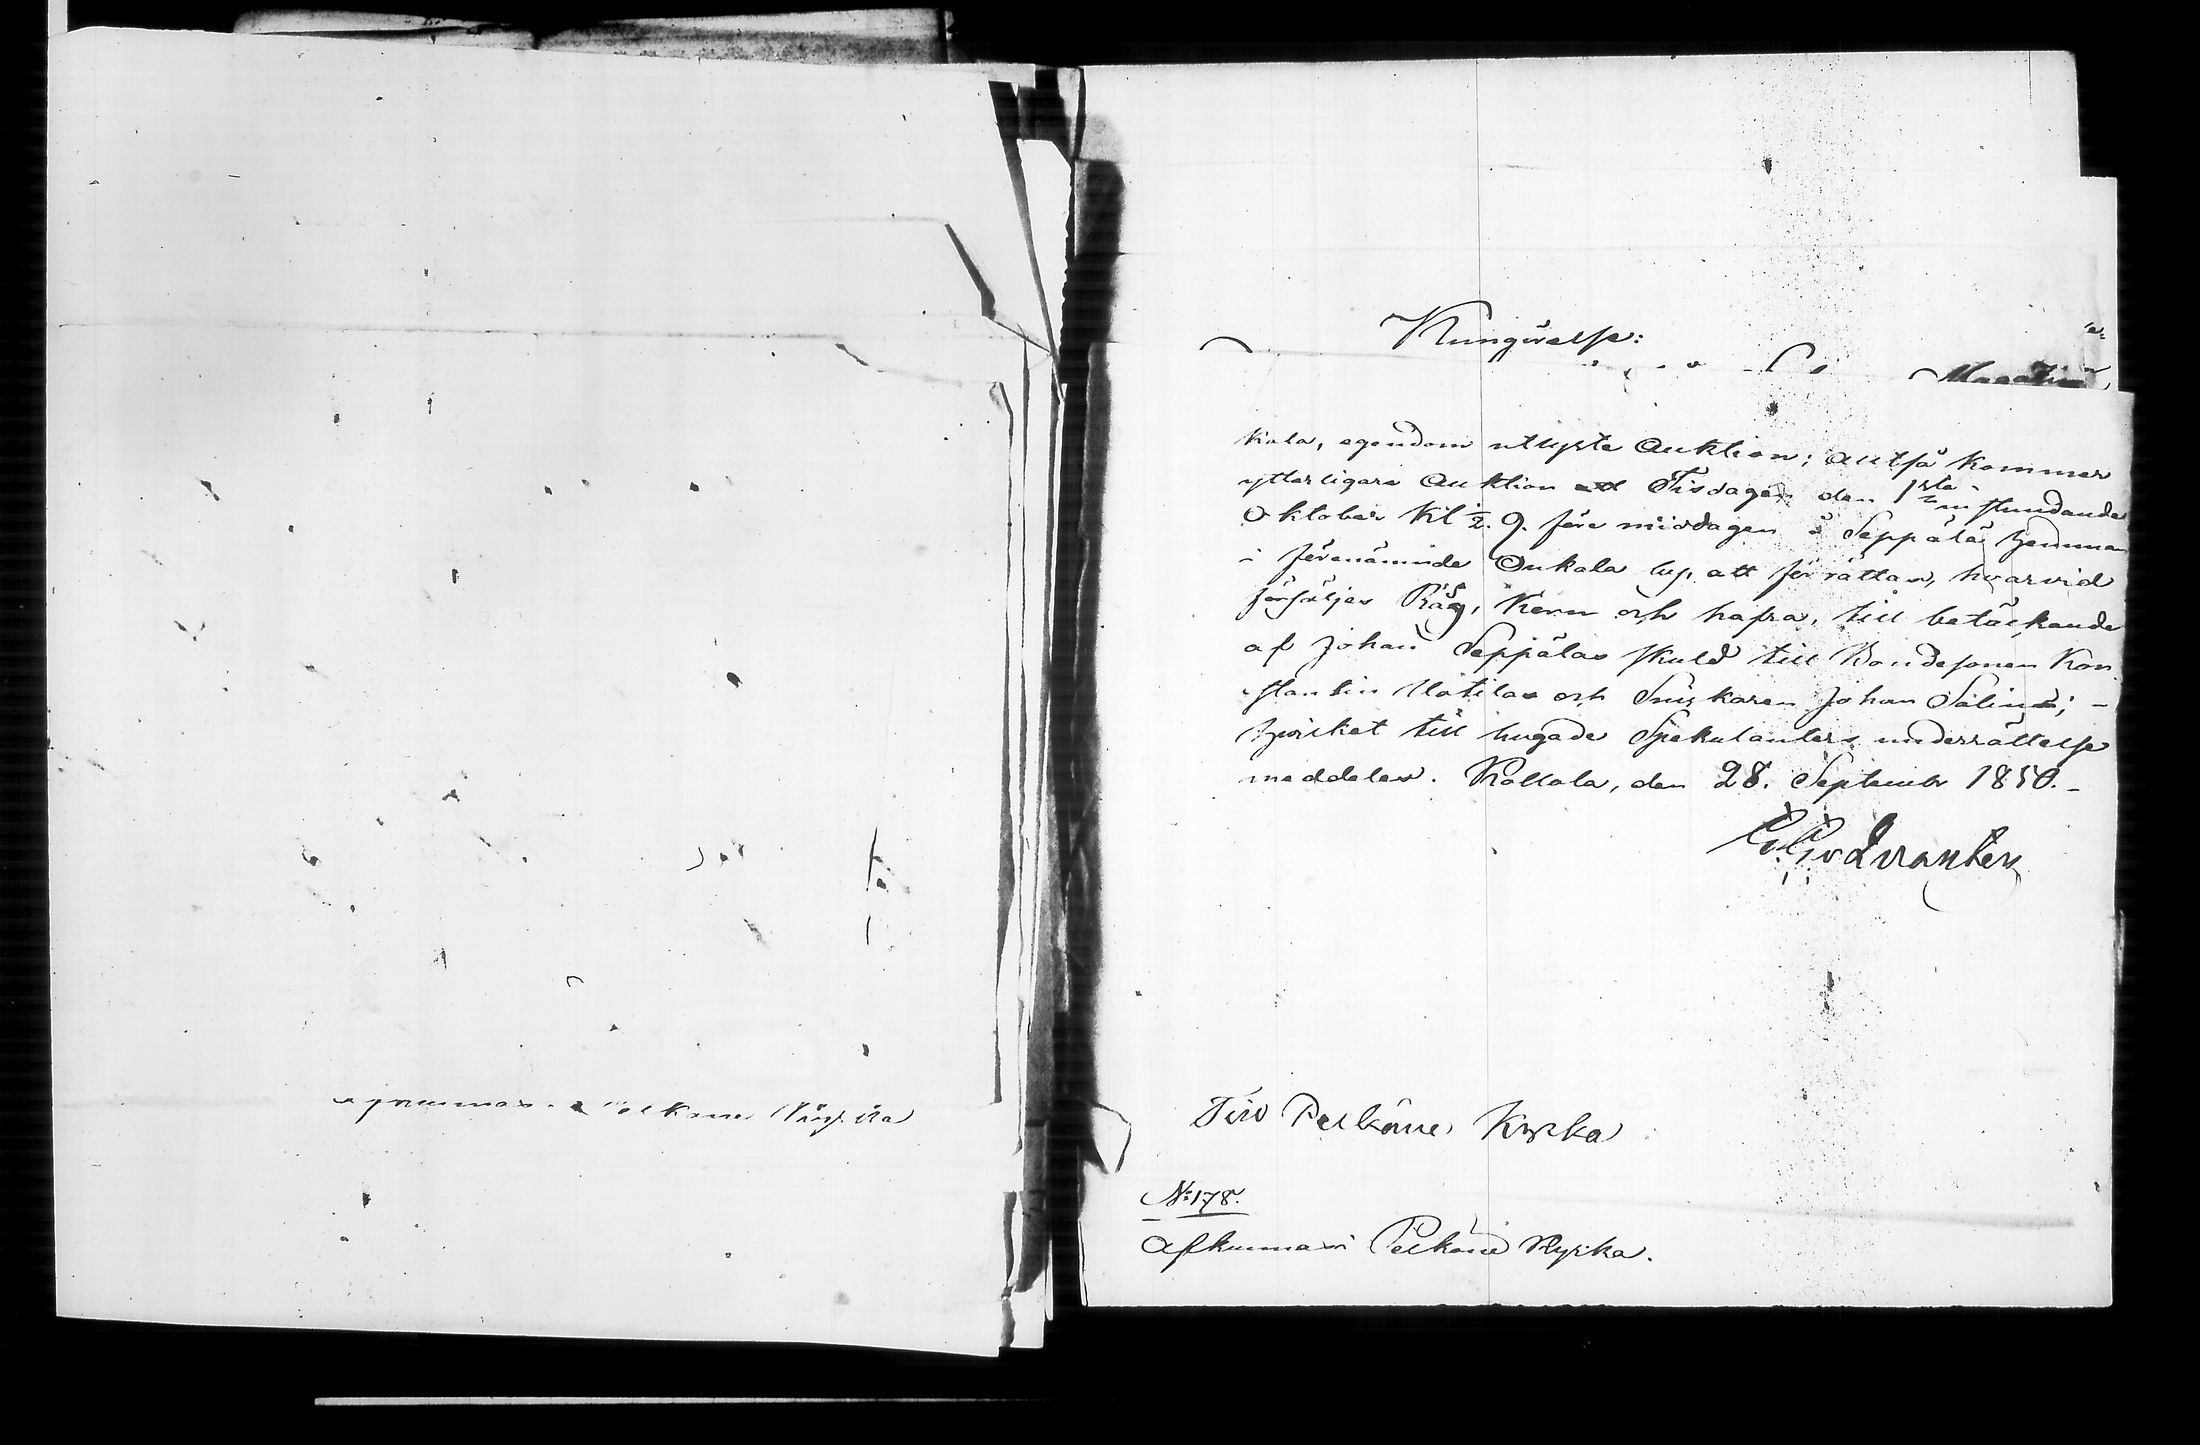 Kungörelse:
kala, egendom utlyste Auktion; alltså kommer
ytterligare Auktion Tisdagen den 1ste instundande
Oktober Kl ½ 9. före middagen å Seppälä hemman
i förenämnde Onkala by, att förrättas, hvarvid
försäljes Råg, Korn och hafra, till betäckande
af Johan Seppäläs skuld till Bondesonen Kon
stantin Uotilas och Snickaren Johan Salin;
hvilket till hugade Spekulanters underrättelse
meddelas. Kollola, den 28. September 1850.
Till Pelkäne Kyrka
No 178.
Afkunnas i Pelkäne Kyrka.